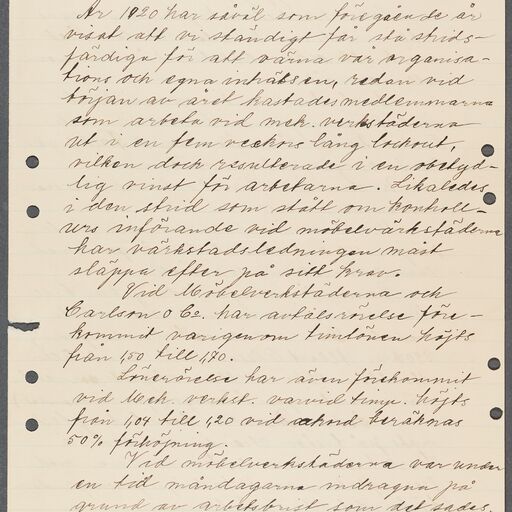 År 1920 har såväl som föregående år
visat att vi ständigt får stå strids-
färdiga för att värna vår organisa-
tions och egna intressen, redan vid
början av året kastades medlemmarna
som arbeta vid mek. verkstäderna
ut i en fem veckors lång lockout,
vilken dock resulterade i en obetyd-
lig vinst för arbetarna. Likaledes
i den strid som stått om kontroll-
urs införande vid möbelvärkstäderna
har värkstadsledningen måst
släppa efter på sitt krav.
Vid Möbelverkstäderna och
Carlson o Co. har avtalsrörelse före-
kommit varigenom timlönen höjts
från 1,50 till 1,90.
Lönerörelse har även förekommit
vid Mek. verkst. varvid timp. höjts
från 1,04 till 1,20 vid ackord beräknas
50% förhöjning.
Vid möbelverkstäderna var under
en tid måndagarna indragna på
grund av arbetsbrist som det sades.